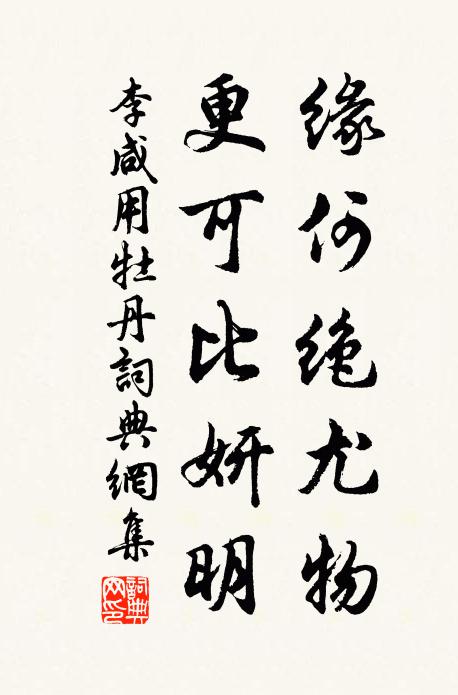 緣何絕尤物
更可比妍明
李咸用牡丹詞典網集
詞典網印